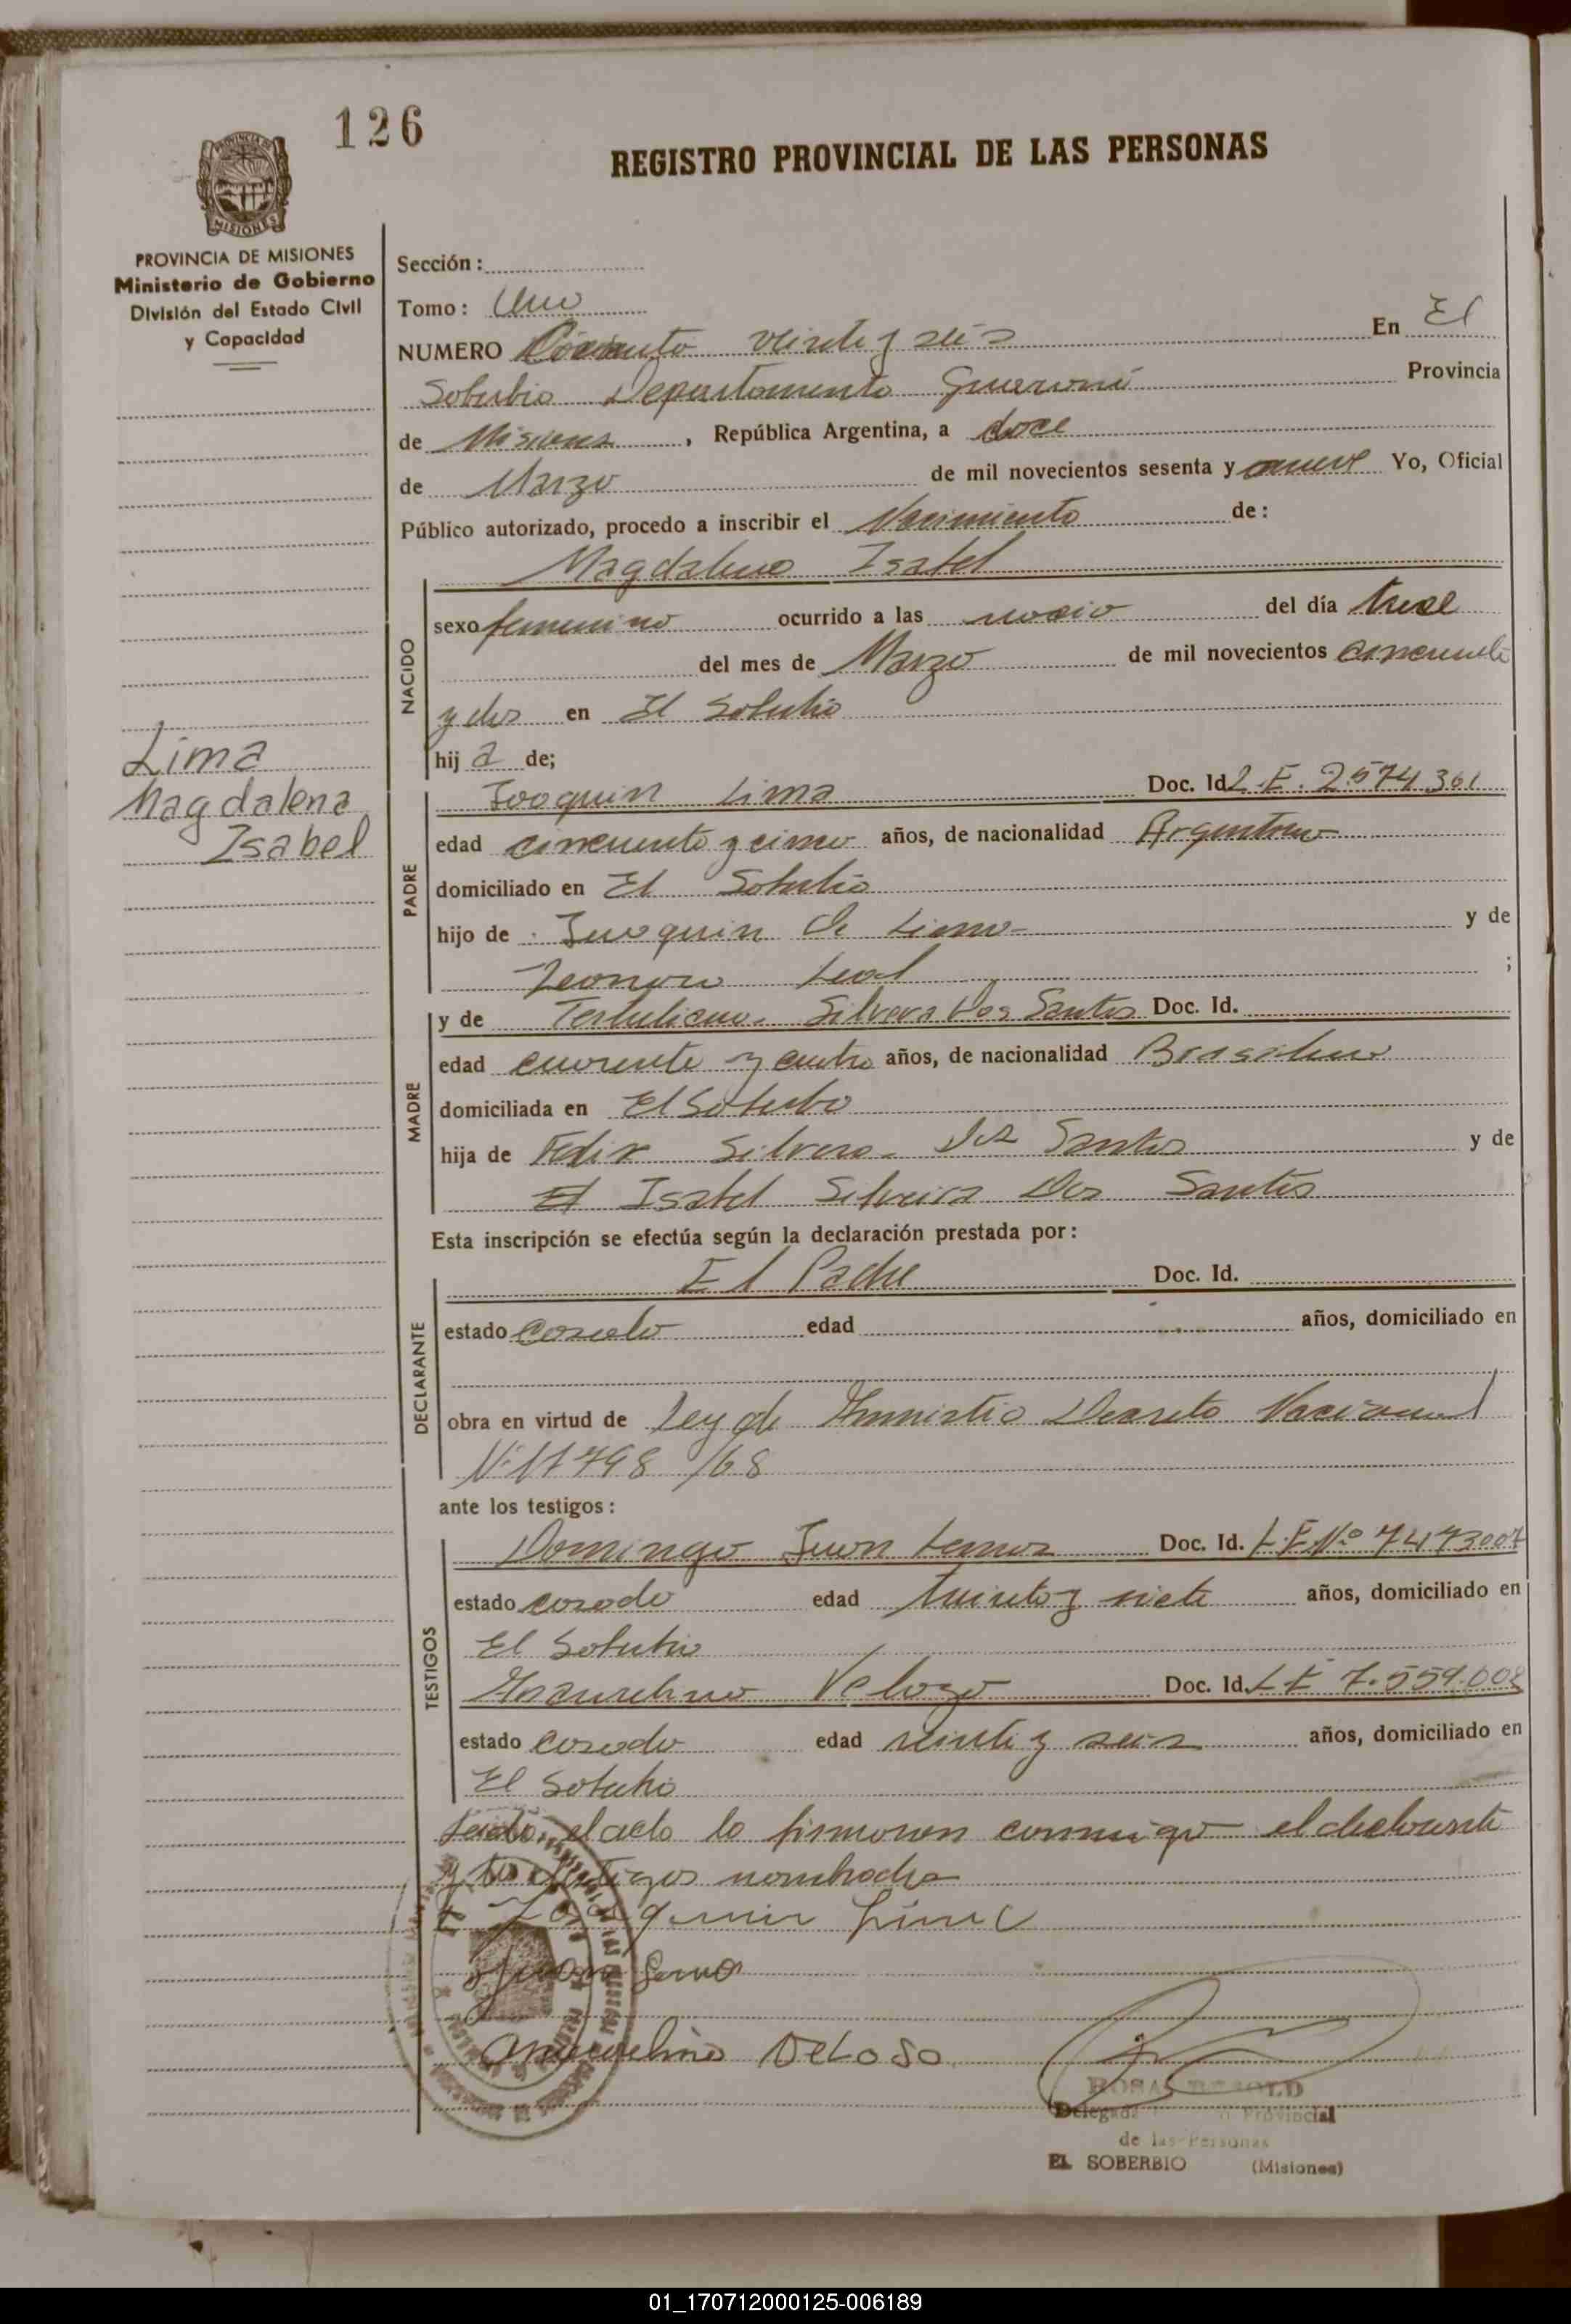 126
REGISTRO PROVINCIAL DE LAS PERSONAS
PROVINCIA DE MISIONES
Ministerio de Gobierno
División del Estado Civil
y Capacidad
Sección :
Tomo : Uno
NUMERO Ciento veinte y seis En El
Soberbio Departamento Guaraní Provincia
de Misiones , República Argentina, a doce
de Marzo de mil novecientos sesenta y nueve Yo, Oficial
Público autorizado, procedo a inscribir el Nacimiento de :
Magdalena Isabel
NACIDO
sexo femenino ocurrido a las del día trece
del mes de Marzo de mil novecientos cincuenta
y dos en El Soberbio
hij a de;
Lima
Magdalena
Isabel
PADRE
Joaquin Lima Doc. Id L.E. 2574301
edad cincuenta y cinco años, de nacionalidad Argentino
domiciliado en El Soberbio
hijo de Joaquin de Lima y de
Leonora Leal ;
MADRE
y de Silvera Dos Santos Doc. Id.
edad cuarenta y cuatro años, de nacionalidad Brasilera
domiciliada en El Soberbio
hija de Felix Silvera Dos Santos y de
El Isabel Silveira Dos Santos
Esta inscripción se efectúa según la declaración prestada por :
El Padre Doc. Id.
DECLARANTE
estado casado edad años, domiciliado en
obra en virtud de Ley de Amnistia Decreto Nacional
Nº 17798 /68
ante los testigos :
TESTIGOS
Domingo Juan Lemos Doc. Id. L.E.Nº
estado casado edad treinta y siete años, domiciliado en
El Soberbio
Velozo Doc. Id. LE 7.559.008
estado casado edad veinte y seis años, domiciliado en
El Soberbio
Leido, el acta lo firmaron conmigo el declarante
y los testigos nombrados
Joaquin Lima
Juan Lemos
VELOSO
ROSA
Delegada Provincial
de las Personas
EL SOBERBIO (Misiones)
01_170712000125-006189